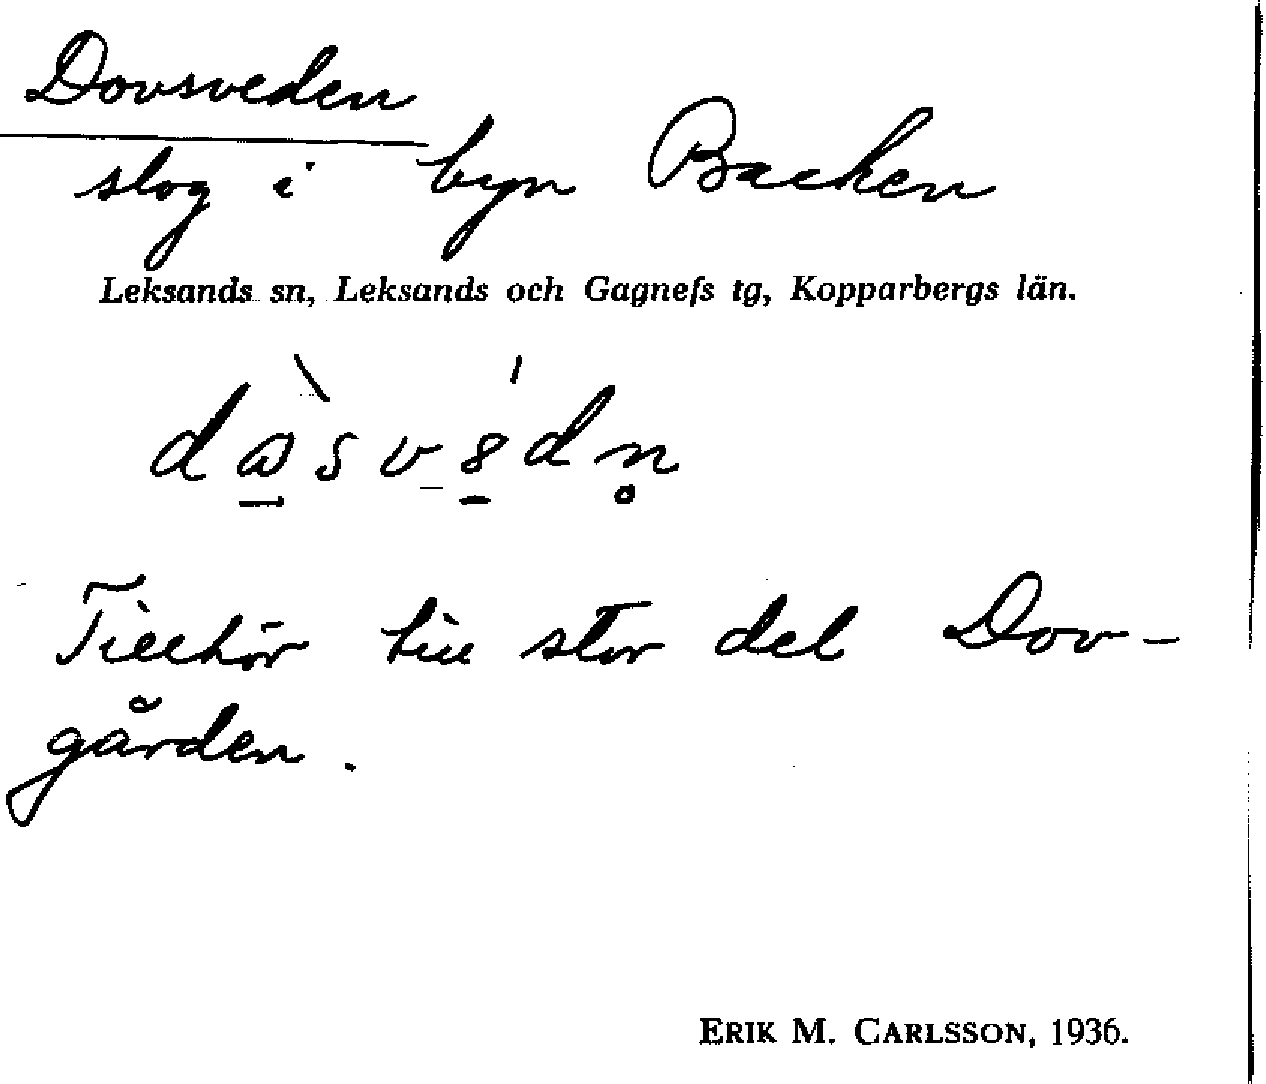 Dovsveden
slog i byn Backen
Leksands sn, Leksands och Gagnefs tg, Kopparbergs län.
Tillhör till stor del Dov-
gården.
ERIK M. CARLSSON, 1936.